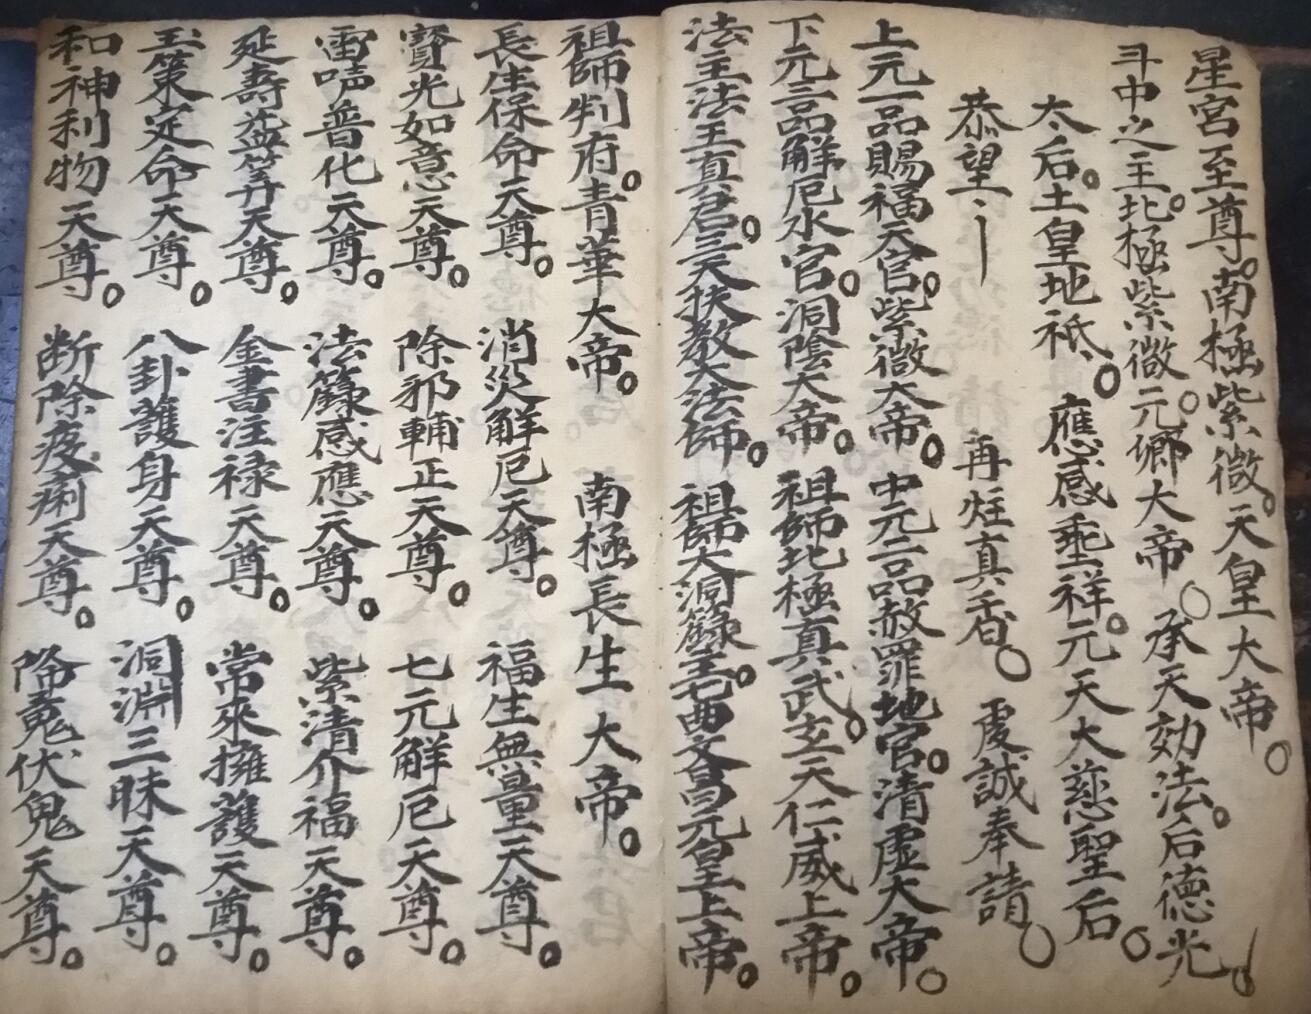 星宮至尊。南極紫微。天皇大帝。
斗中之主。北極紫微。元卿大帝。承天効法。后德光。
太后。土皇地祇。應感垂祥。元天大慈聖后。
恭望 再炷真香。虔誠奉請。
上元一品賜福天官。紫微大帝。中元二品赦罪地官。清虚大帝。
下元三品解厄水官。洞陰大帝。祖師北極真武。玄天仁威上帝。
法王法王真君。三天扶教大法師。祖師大洞籙主。七曲文昌元皇上帝。
祖師判府。青華大帝。南極長生大帝。
長生保命天尊。消災解厄天尊。福生無量天尊。
寳光如意天尊。除邪輔正天尊。七元解厄天尊。
雷声普化天尊。法籙感應天尊。紫清介福天尊。
延壽益筭天尊。金書注禄天尊。常來擁護天尊。
玉策定命天尊。八卦護身天尊。洞淵三昧天尊。
和神利物天尊。断除疫痢天尊。降魔伏鬼天尊。